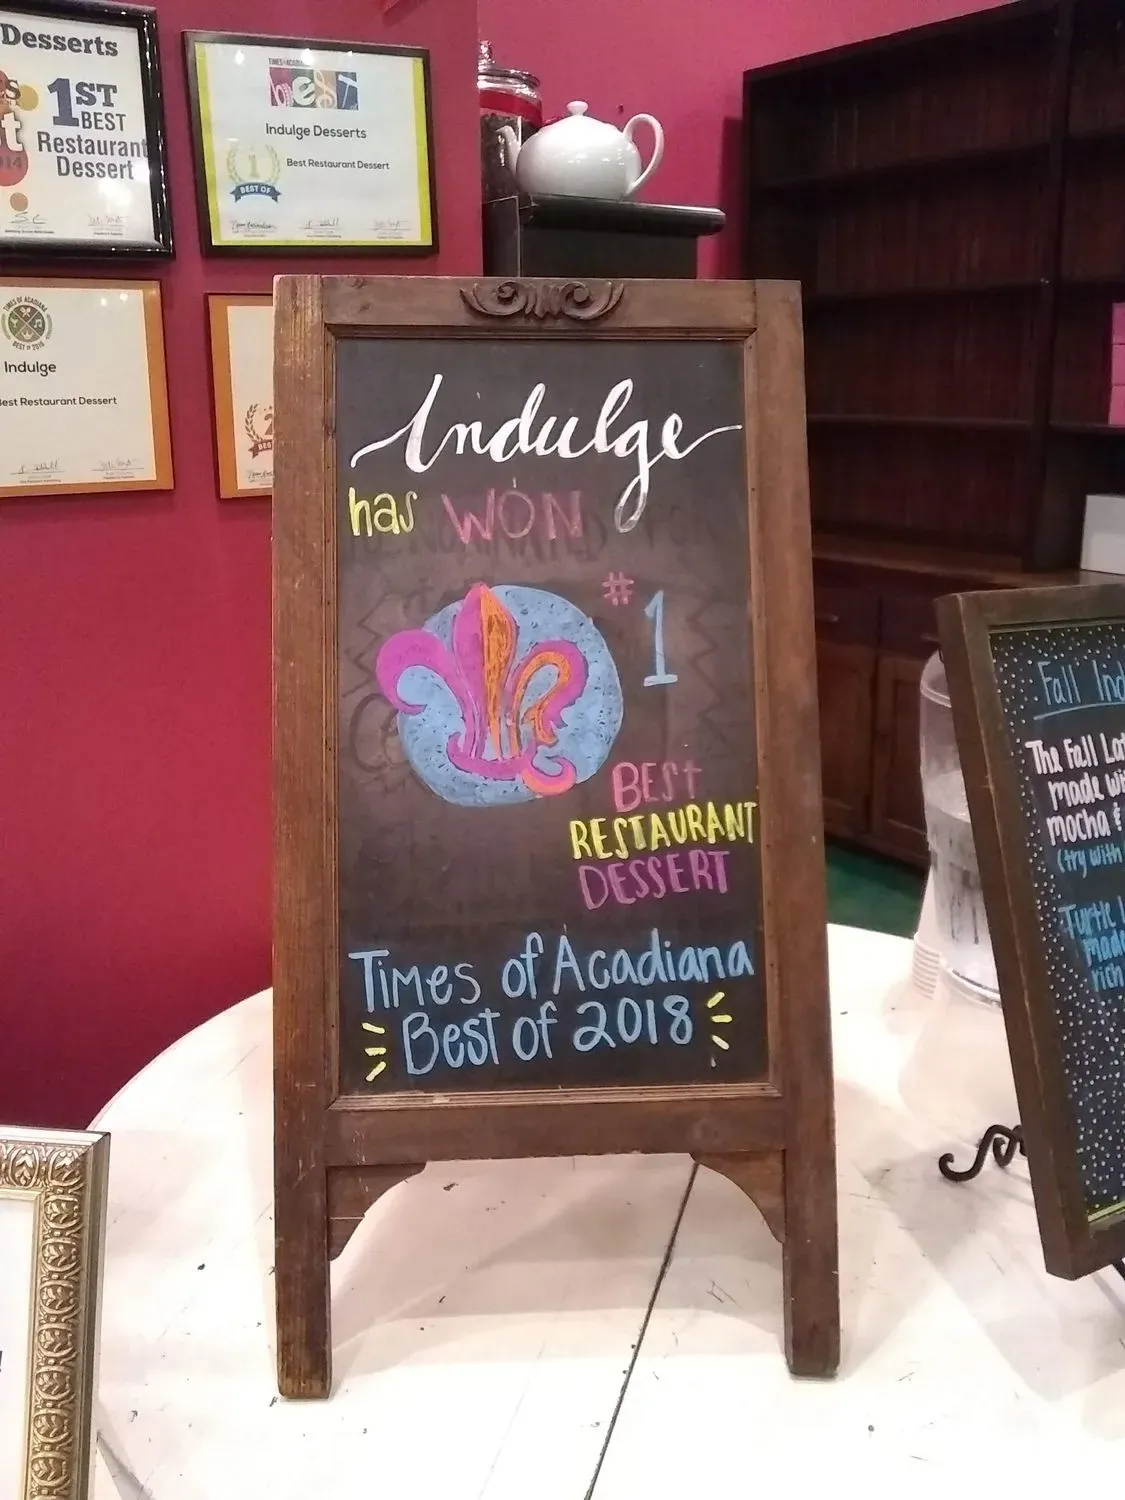 Desserts
1ST
BEST
Restaurant
Dessert
TIMES of ACADIANA
best
Indulge Desserts
Best Restaurant Dessert
1
BEST OF
TIMES OF ACADIANA
BEST OF 2016
Indulge
Best Restaurant Dessert
Indulge
has WON
#1
BEST
RESTAURANT
DESSERT
Times of Acadiana
Best of 2018
Fall Ind
The Fall La
made wi
mocha &
(try with
Turtle
made
rich